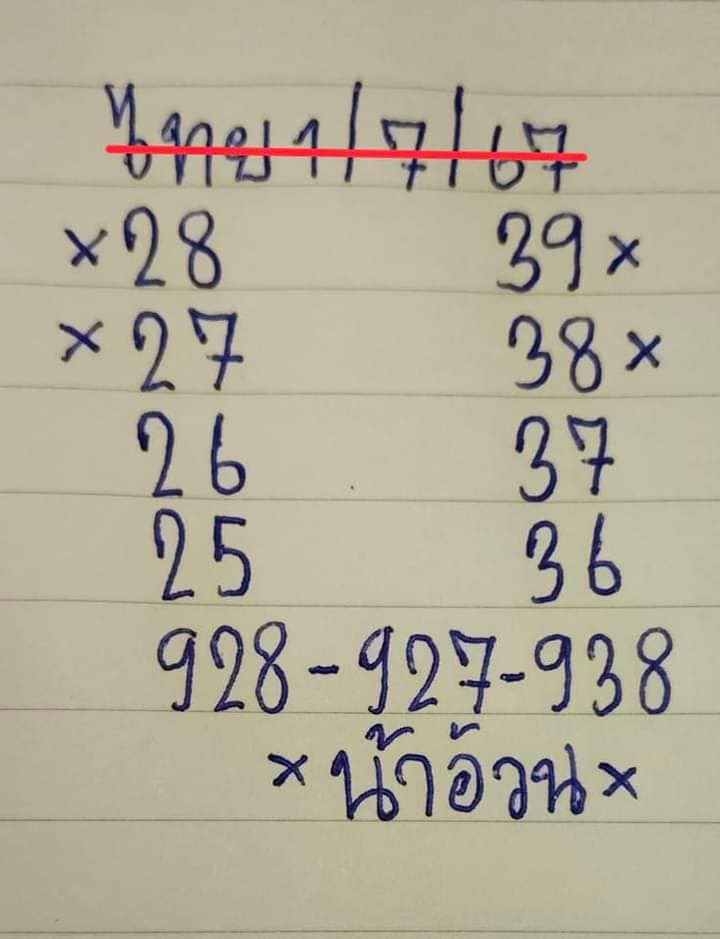 ไทย 1/7/67
×28 39×
×27 38×
26 37
25 36
928-927-938
×น้าอ้วน×